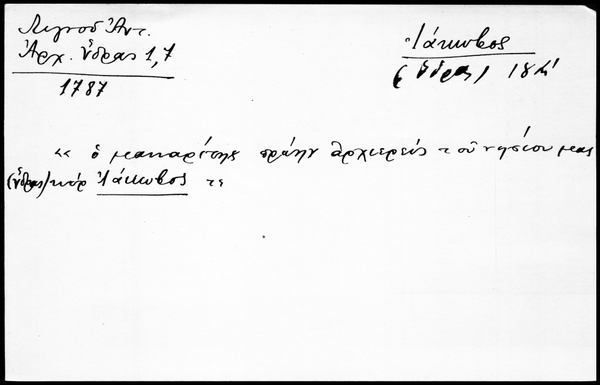 Λιγνοῦ Ἀντ.
Ἀρχ. ὕδρας 1,7
1787
Ἰάκωβος
(ὕδρας) 18
« ὁ μακαρίτης πρώην ἀρχιερεύς τοῦ νησίου μας
(ὕδρας) κύρ Ἰάκωβος τε